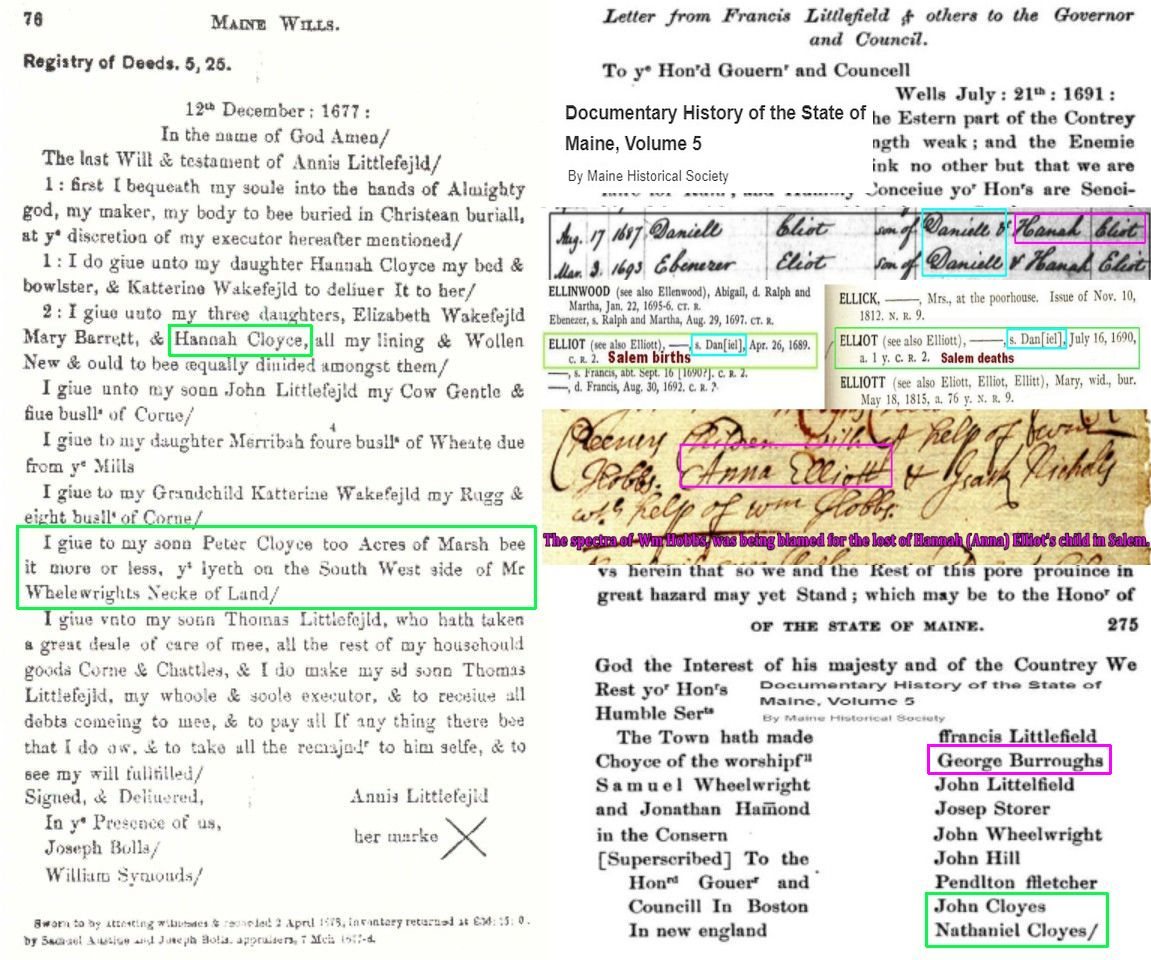 76
MAINE WILLS.
Registry of Deeds. 5, 25.
12th December: 1677:
In the name of God Amen/
The last Will & testament of Annis Littlefejld/
1: first I bequeath my soule into the hands of Almighty
god, my maker, my body to bee buried in Christean buriall,
at ye discretion of my executor hereafter mentioned/
1: I do giue unto my daughter Hannah Cloyce my bed &
bowlster, & Katterine Wakefejld to deliuer It to her/
2: I giue unto my three daughters, Elizabeth Wakefejld
Mary Barrett, & Hannah Cloyce, all my lining & Wollen
New & ould to bee æqually diuided amongst them/
I giue unto my sonn John Littlefejld my Cow Gentle &
fiue buslls of Corne/
I giue to my daughter Merribah foure buslls of Wheate due
from ye Mills
I giue to my Grandchild Katterine Wakefejld my Rugg &
eight buslls of Corne/
I giue to my sonn Peter Cloyce too Acres of Marsh bee
it more or less, yt lyeth on the South West side of Mr
Whelewrights Necke of Land/
I giue vnto my sonn Thomas Littlefejld, who hath taken
a great deale of care of mee, all the rest of my househould
goods Corne & Chattles, & I do make my sd sonn Thomas
Littlefejld, my whoole & soole executor, & to receiue all
debts comeing to mee, & to pay all If any thing there bee
that I do ow, & to take all the remajndr to him selfe, & to
see my will fullfilled/
Signed, & Deliuered,
In ye Presence of us,
Joseph Bolls/
William Symonds/
Annis Littlefejld
her marke X
Sworn to by attesting witnesses & recorded 2 April 1678, inventory returned at
by Samuel Austine and Joseph Bolls, appraisers, 7 Mch
Letter from Francis Littlefield & others to the Governor
and Council.
To ye Hon'd Gouernr and Councell
Wells July: 21th: 1691:
Documentary History of the State of
Maine, Volume 5
By Maine Historical Society
he Estern part of the Contrey
ngth weak; and the Enemie
ink no other but that we are
Conceiue yor Hon's are Senci-
Aug. 17 1687 Daniell Eliot son of Daniell & Hanah Eliot
Mar. 3. 1693 Ebenezer Eliot son of Daniell & Hanah Eliot
ELLINWOOD (see also Ellenwood), Abigail, d. Ralph and
Martha, Jan. 22, 1695-6. CT. R.
Ebenezer, s. Ralph and Martha, Aug. 29, 1697. CT. R.
ELLIOT (see also Elliott), ——, s. Dan[iel], Apr. 26, 1689.
C. R. 2. Salem births
——, s. Francis, abt. Sept. 16 [1690?]. C. R. 2.
——, d. Francis, Aug. 30, 1692. C. R. ?
ELLICK, ——, Mrs., at the poorhouse. Issue of Nov. 10,
1812. N. R. 9.
ELLIOT (see also Elliott), ——, s. Dan[iel], July 16, 1690,
a. 1 y. C. R. 2. Salem deaths
ELLIOTT (see also Eliott, Elliot, Ellitt), Mary, wid., bur.
May 18, 1815, a. 76 y. N. R. 9.
with help of
Hobbs. Anna Elliott & Nichols
help of wm Hobbs.
The spectra of Wm Hobbs, was being blamed for the lost of Hannah (Anna) Elliot's child in Salem.
vs herein that so we and the Rest of this pore prouince in
great hazard may yet Stand; which may be to the Honor of
OF THE STATE OF MAINE. 275
God the Interest of his majesty and of the Countrey We
Rest yor Hon's
Humble Serts
Documentary History of the State of
Maine, Volume 5
By Maine Historical Society
The Town hath made
Choyce of the worshipfll
Samuel Wheelwright
and Jonathan Hamond
in the Consern
[Superscribed] To the
Honrd Gouer and
Councill In Boston
In new england
ffrancis Littlefield
George Burroughs
John Littelfield
Josep Storer
John Wheelwright
John Hill
Pendlton ffletcher
John Cloyes
Nathaniel Cloyes/